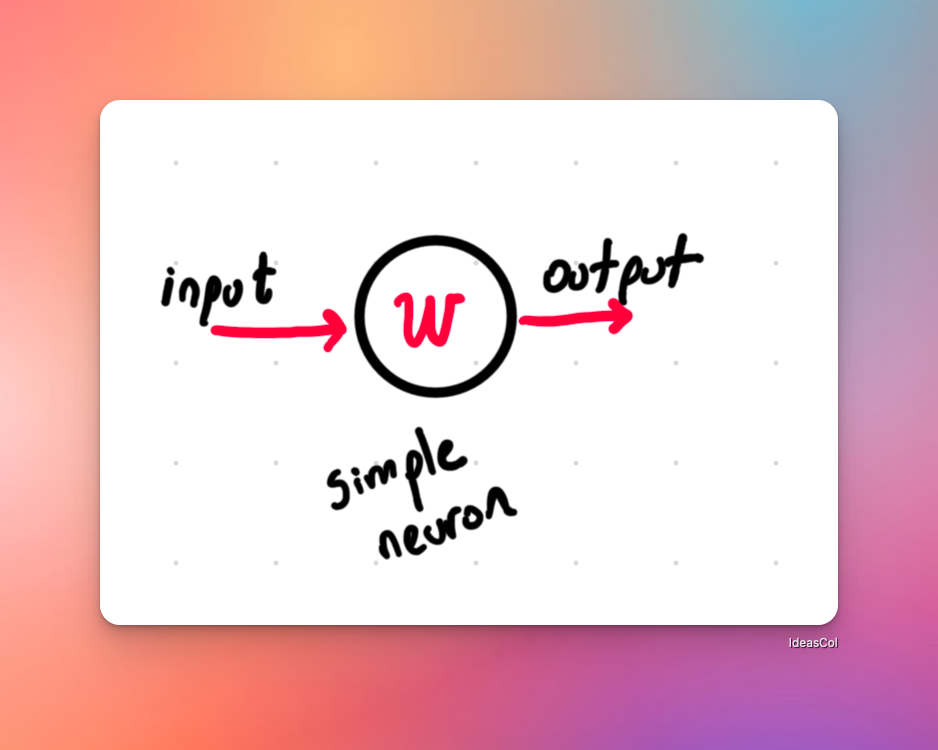 input
output
W
simple
neuron
IdeasCol